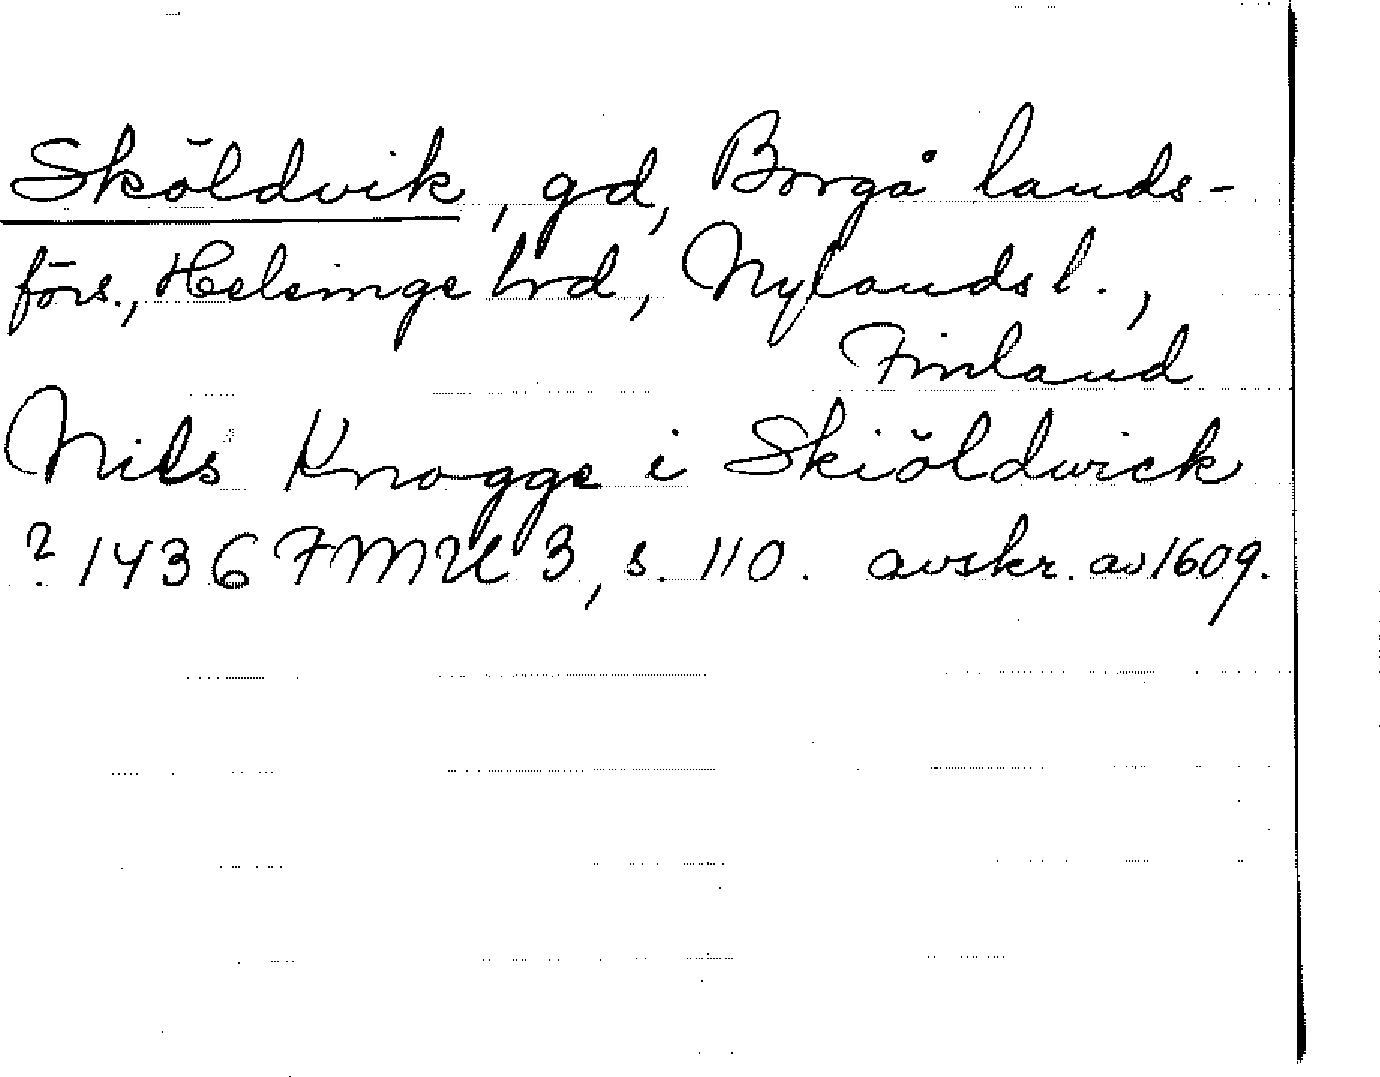 Sköldvik, gd, Borgå lands-
förs., Helsinge hrd, Nylands l.,
Finland
Nils Knagge i Skiöldwick
? 1436 FMU 3, s. 110. avskr. av 1609.